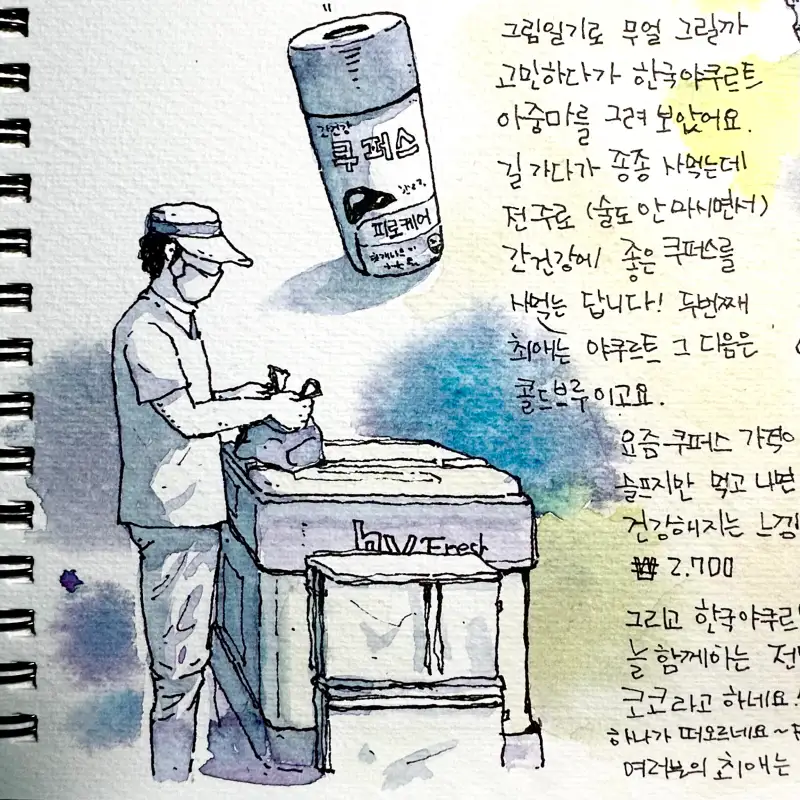 간건강
쿠퍼스
피로케어
hy Fresh
그림일기로 무얼 그릴까
고민하다가 한국야쿠르트
아줌마를 그려 보았어요.
길 가다가 종종 사먹는데
전 주로 (술도 안 마시면서)
간건강에 좋은 쿠퍼스를
사먹는 답니다! 두번째
최애는 야쿠르트 그 다음은
콜드브루이고요.
요즘 쿠퍼스 가격이
슬프지만 먹고 나면
건강해지는 느낌
₩ 2.700
그리고 한국야쿠르
늘 함께하는 전
코코라고 하네요!
하나가 떠오르네요~
여러분의 최애는